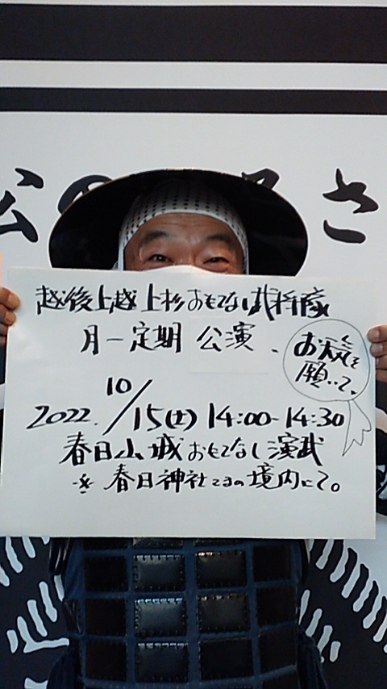 松のふるさ
越後上越上杉おもてなし武将隊
月一定期 公演、
お天気を
願って。
2022. 10/15(土) 14:00-14:30
春日山城おもてなし演武
※ 春日神社さまの境内にて。